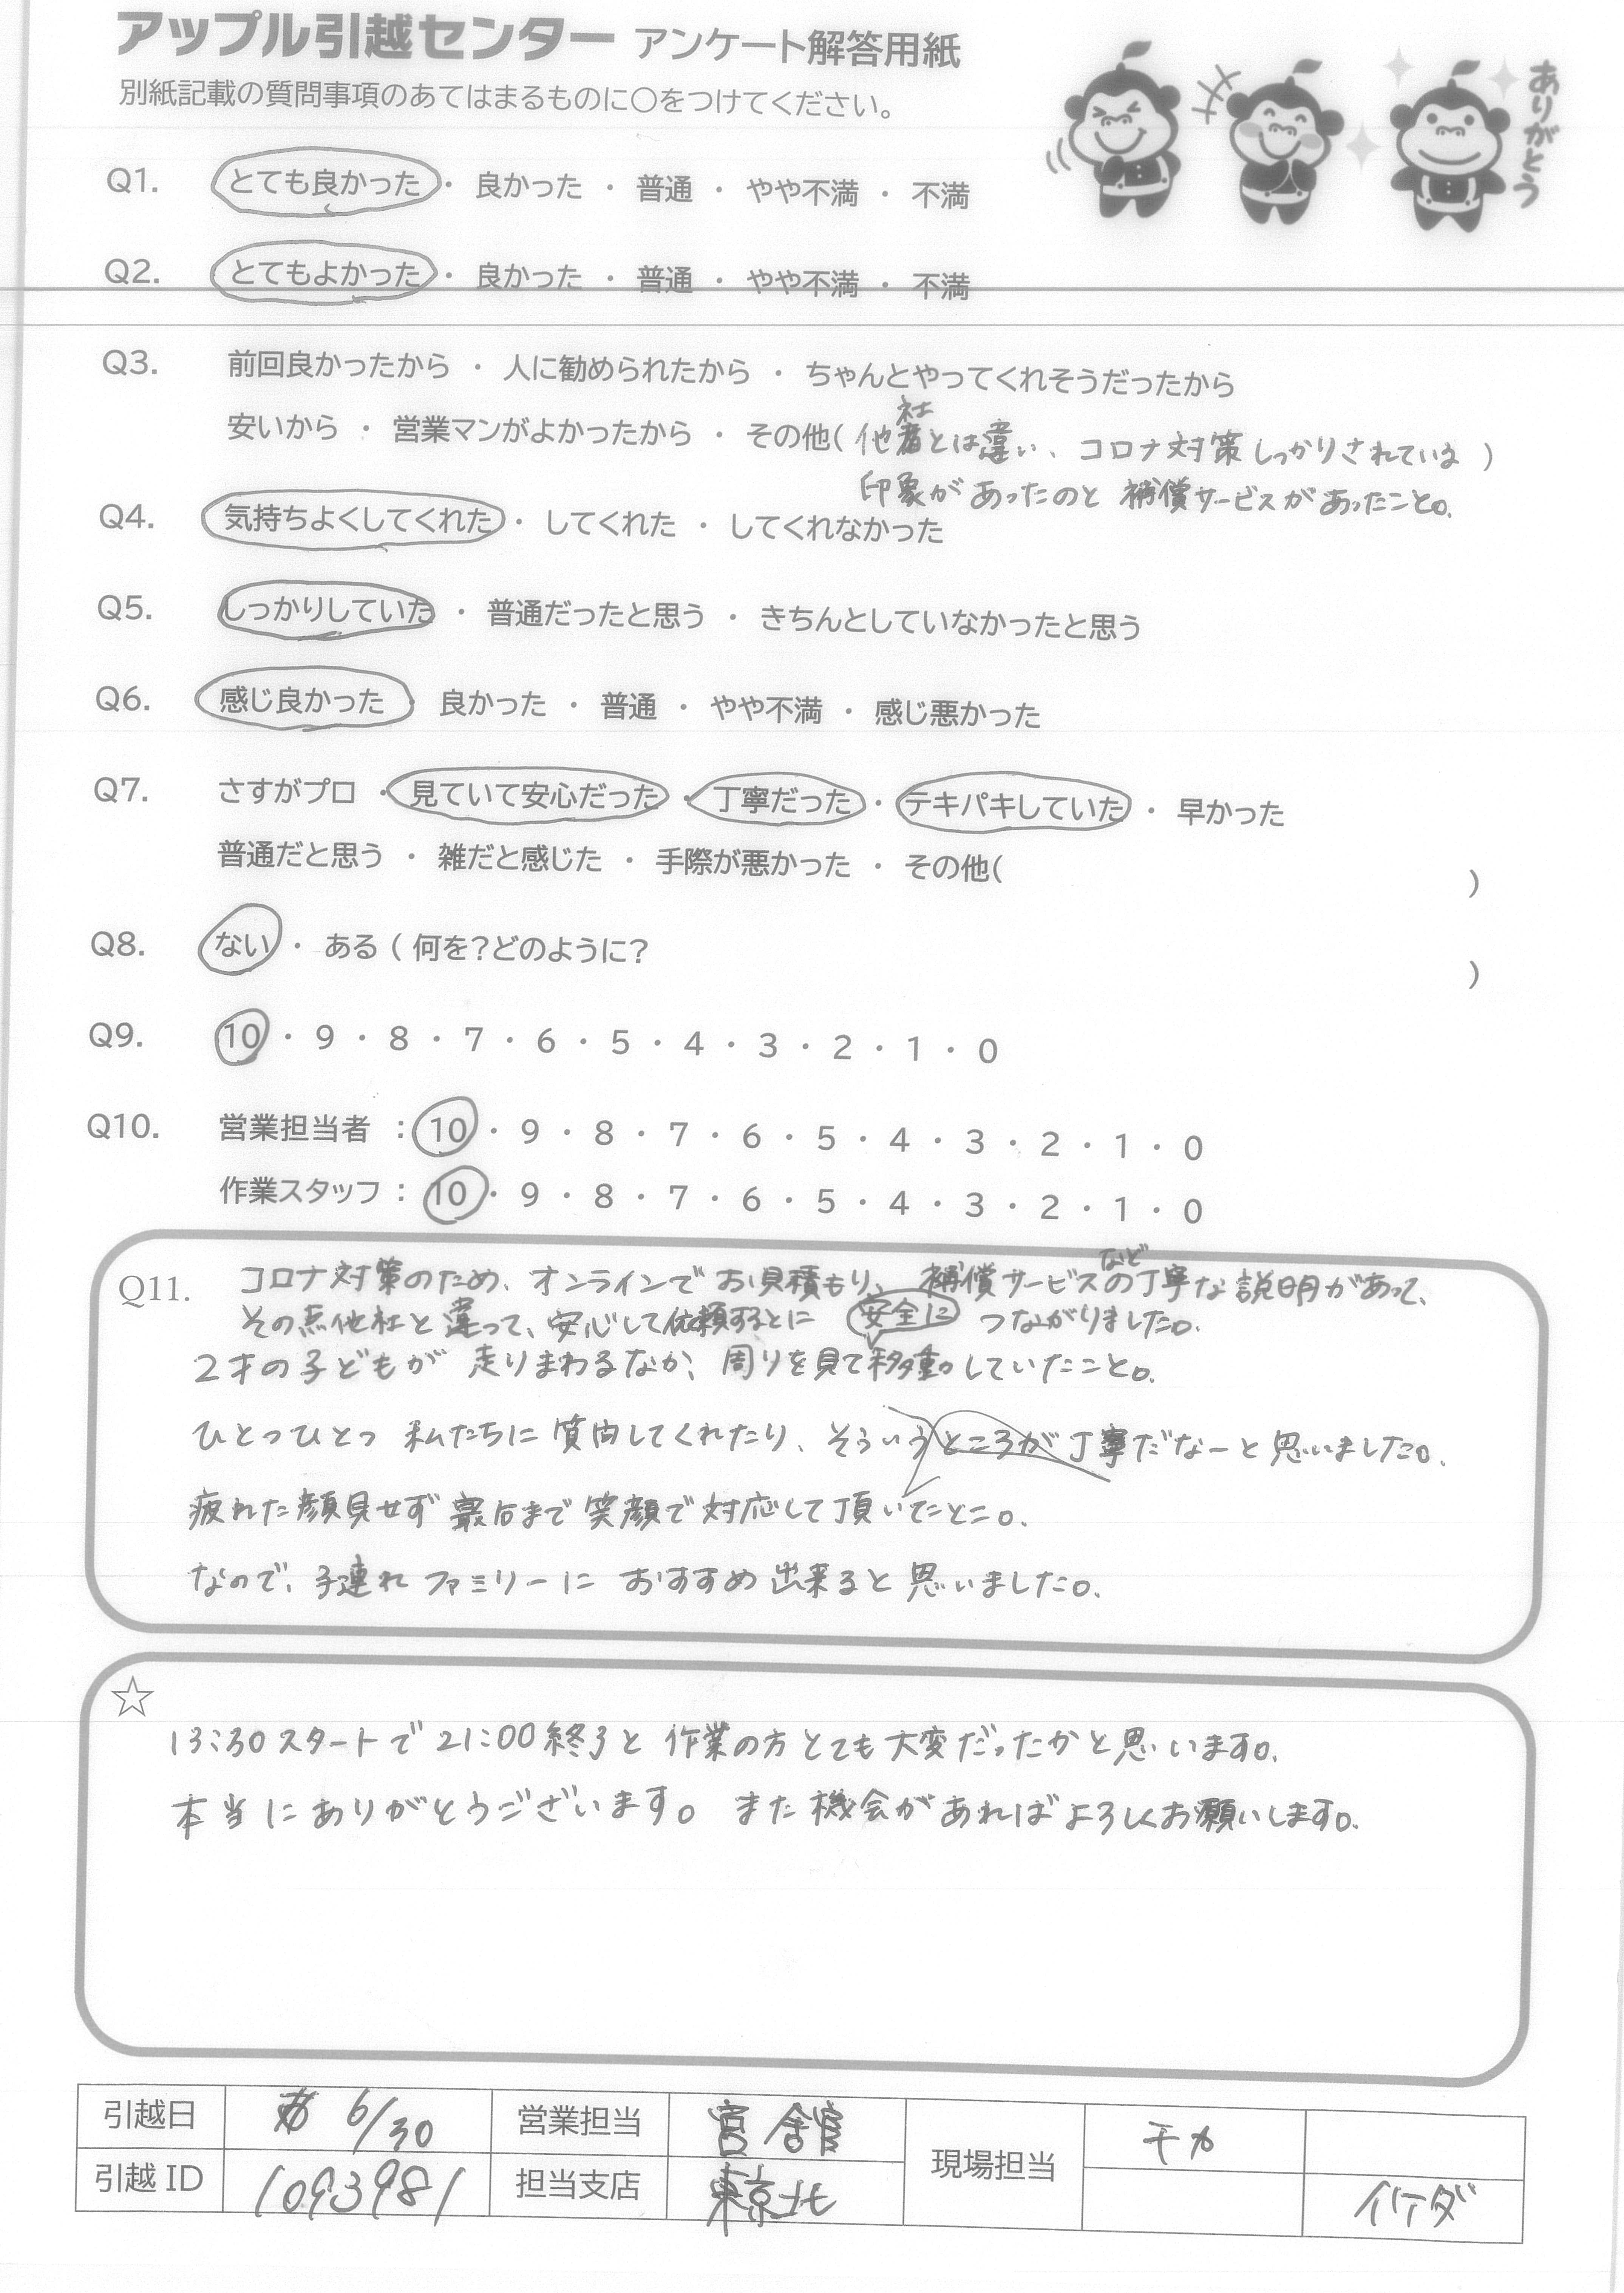 アップル引越センター アンケート解答用紙
別紙記載の質問事項のあてはまるものに○をつけてください。
ありがとう
Q1. とても良かった ・ 良かった ・ 普通 ・ やや不満 ・ 不満
Q2. とてもよかった ・ 良かった ・ 普通 ・ やや不満 ・ 不満
Q3. 前回良かったから ・ 人に勧められたから ・ ちゃんとやってくれそうだったから
安いから ・ 営業マンがよかったから ・ その他( 他社とは違い、コロナ対策しっかりされている )
印象があったのと 補償サービスがあったこと。
Q4. 気持ちよくしてくれた ・ してくれた ・ してくれなかった
Q5. しっかりしていた ・ 普通だったと思う ・ きちんとしていなかったと思う
Q6. 感じ良かった 良かった ・ 普通 ・ やや不満 ・ 感じ悪かった
Q7. さすがプロ ・ 見ていて安心だった ・ 丁寧だった ・ テキパキしていた ・ 早かった
普通だと思う ・ 雑だと感じた ・ 手際が悪かった ・ その他( )
Q8. ない ・ ある ( 何を?どのように? )
Q9. 10 ・ 9 ・ 8 ・ 7 ・ 6 ・ 5 ・ 4 ・ 3 ・ 2 ・ 1 ・ 0
Q10. 営業担当者 : 10 ・ 9 ・ 8 ・ 7 ・ 6 ・ 5 ・ 4 ・ 3 ・ 2 ・ 1 ・ 0
作業スタッフ : 10 ・ 9 ・ 8 ・ 7 ・ 6 ・ 5 ・ 4 ・ 3 ・ 2 ・ 1 ・ 0
Q11. コロナ対策のため、オンラインでお見積もり、補償サービスなどの丁寧な説明があって、
その点他社と違って、安心して依頼することに つながりました。
安全に
2才の子どもが 走りまわるなか、周りを見て移動していたこと。
ひとつひとつ 私たちに 質問してくれたり、そういうところが丁寧だなーと思いました。
疲れた顔見せず 最后まで 笑顔で対応して頂いたとこ。
なので、子連れ ファミリーに おすすめ出来ると思いました。
☆
13:30スタートで 21:00終了と 作業の方とても大変だったかと思います。
本当にありがとうございます。 また機会があればよろしくお願いします。
引越日 6/30 営業担当 宮舘 現場担当 千カ
引越 ID 1093981 担当支店 東京北 イケダ